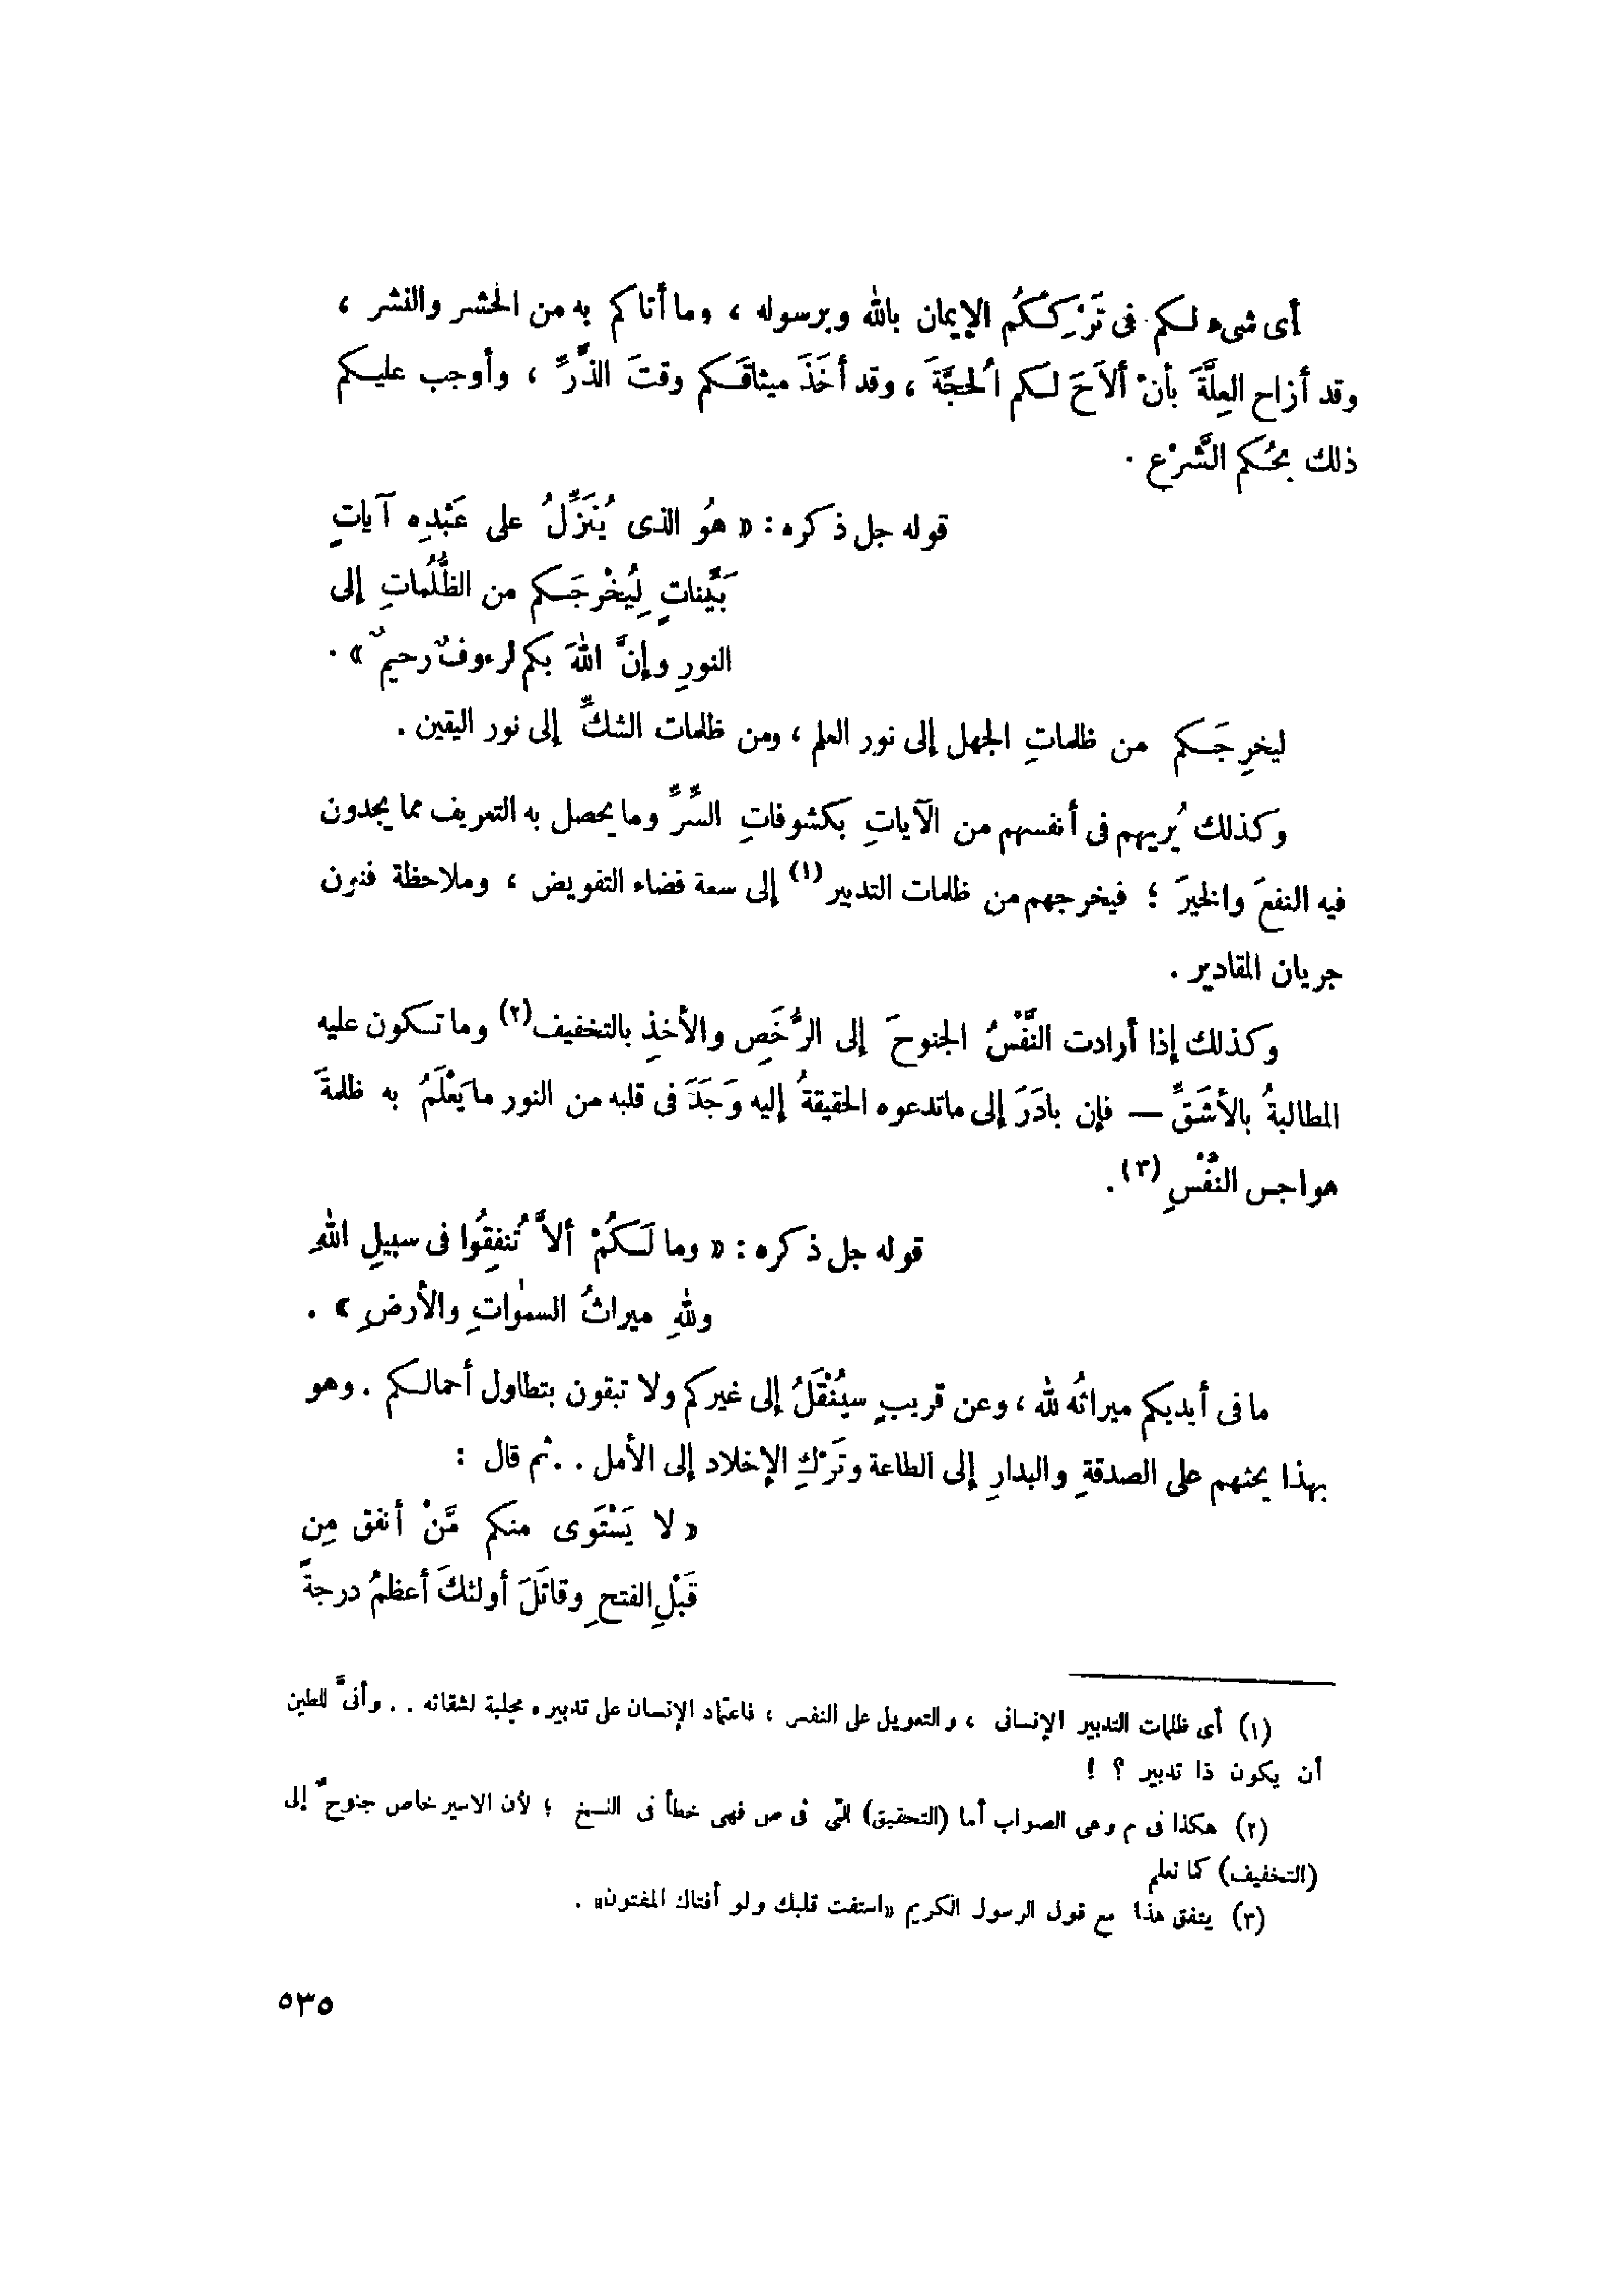 أى شىء لكم فى تَرْكِكُم الإيمان بالله وبرسوله ، وما أتاكم به من الحشر والنشر ،
وقد أزاح العِلَّةَ بأنْ ألاَحَ لكم الُحجَّةَ ، وقد أخَذَ ميثاقَكم وقتَ الذَّرِّ ، وأوجب عليكم
ذلك بحُكم الشَّرْع .
قوله جل ذكره : « هُو الذى يُنَزِّلُ على عَبْدِه آياتٍ
بَيِّناتٍ لِيُخْرِجَكم من الظُّلُماتِ إلى
النورِ وإنَّ اللهَ بكم لرءوفٌ رحيمٌ » .
ليخرِجَكم من ظلماتِ الجهل إلى نور العلم ، ومن ظلمات الشكِّ إلى نور اليقين .
وكذلك يُريهم فى أنفسهم من الآياتِ بكشوفاتِ السِّرِّ وما يحصل به التعريف مما يجدون
فيه النفعَ والخيرَ ؛ فيخرجهم من ظلمات التدبير (١) إلى سعة فضاء التفويض ، وملاحظة فنون
جريان المقادير .
وكذلك إذا أرادت النَّفْسُ الجنوحَ إلى الرُّخَصِ والأخذِ بالتخفيف (٢) وما تكون عليه
المطالبةُ بالأشَقِّ — فإن بادَرَ إلى ماتدعوه الحقيقةُ إليه وَجَدَ فى قلبه من النور ما يَعْلَمُ به ظلمةَ
هواجس النَّفْسِ (٣) .
قوله جل ذكره : « وما لَكُمْ ألاَّ تُنفِقُوا فى سبيلِ اللهِ
وللهِ ميراثُ السمٰواتِ والأرضِ » .
ما فى أيديكم ميراثُه لله ، وعن قريبٍ سيُنْقَلُ إلى غيركم ولا تبقون بتطاول أحمالكم . وهو
بهذا يحثهم على الصدقةِ والبدارِ إلى الطاعة وتَرْكِ الإخلاد إلى الأمل . . ثم قال :
« لا يَسْتَوى منكم مَّنْ أنفق مِن
قَبْلِ الفتحِ وقاتَلَ أولئكَ أعظمُ درجةً
(١) أى ظلمات التدبير الإنسانى ، والتعويل على النفس ، فاعتماد الإنسان على تدبيره مجلبة لشقائه . . وأنىَّ للطين
أن يكون ذا تدبير ؟ !
(٢) هكذا فى م وهى الصواب أما (التحقيق) التى فى ص فهى خطأ فى النسخ ؛ لأن الاسير خاص جنوحٌ إلى
(التخفيف) كما نعلم
(٣) يتفق هذا مع قول الرسول الكريم «استفت قلبك ولو أفتاك المفتون» .
٥٣٥